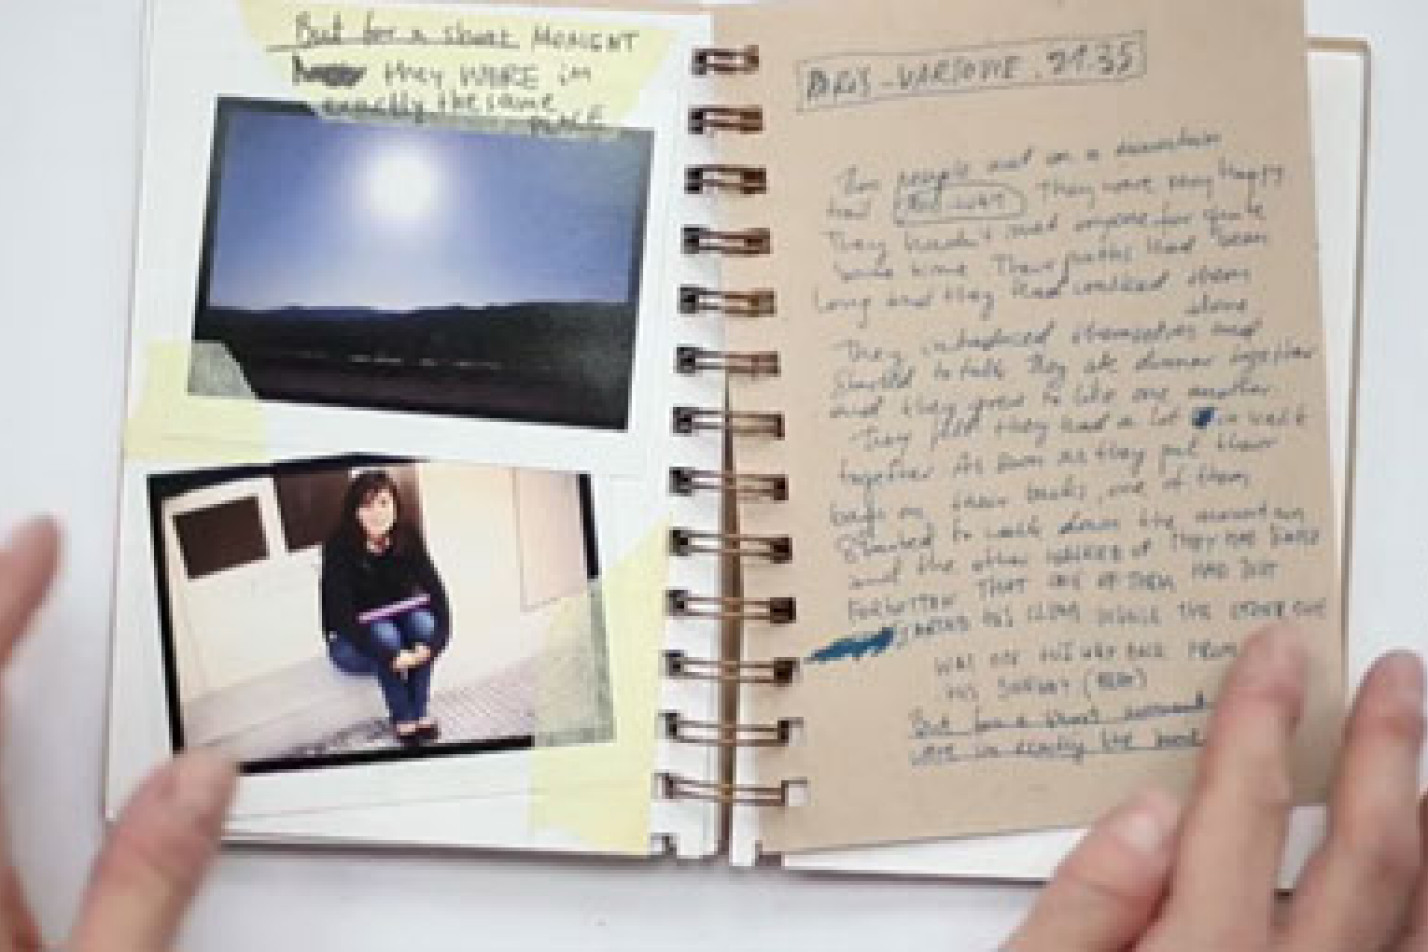 But for a short MOMENT
they WERE in
exactly the same
PLACE
PARIS - VARSOVIE . 21:35
Two people met on a mountain
had They were very happy
They hadn't met anyone for quite
some time Their paths had been
long and they had walked them
alone
They introduced themselves and
started to talk They ate dinner together
and they grew to like one another
They felt they had a lot in walk
together As soon as they put their
bags on their backs, one of them
started to walk down the mountain
and the other WALKED UP THEY HAD
FORGOTTEN THAT ONE OF THEM HAD JUST
STARTED HIS CLIMB WHILE THE OTHER ONE
WAS ON HIS WAY BACK FROM
HIS
But for a short moment
were in exactly the same